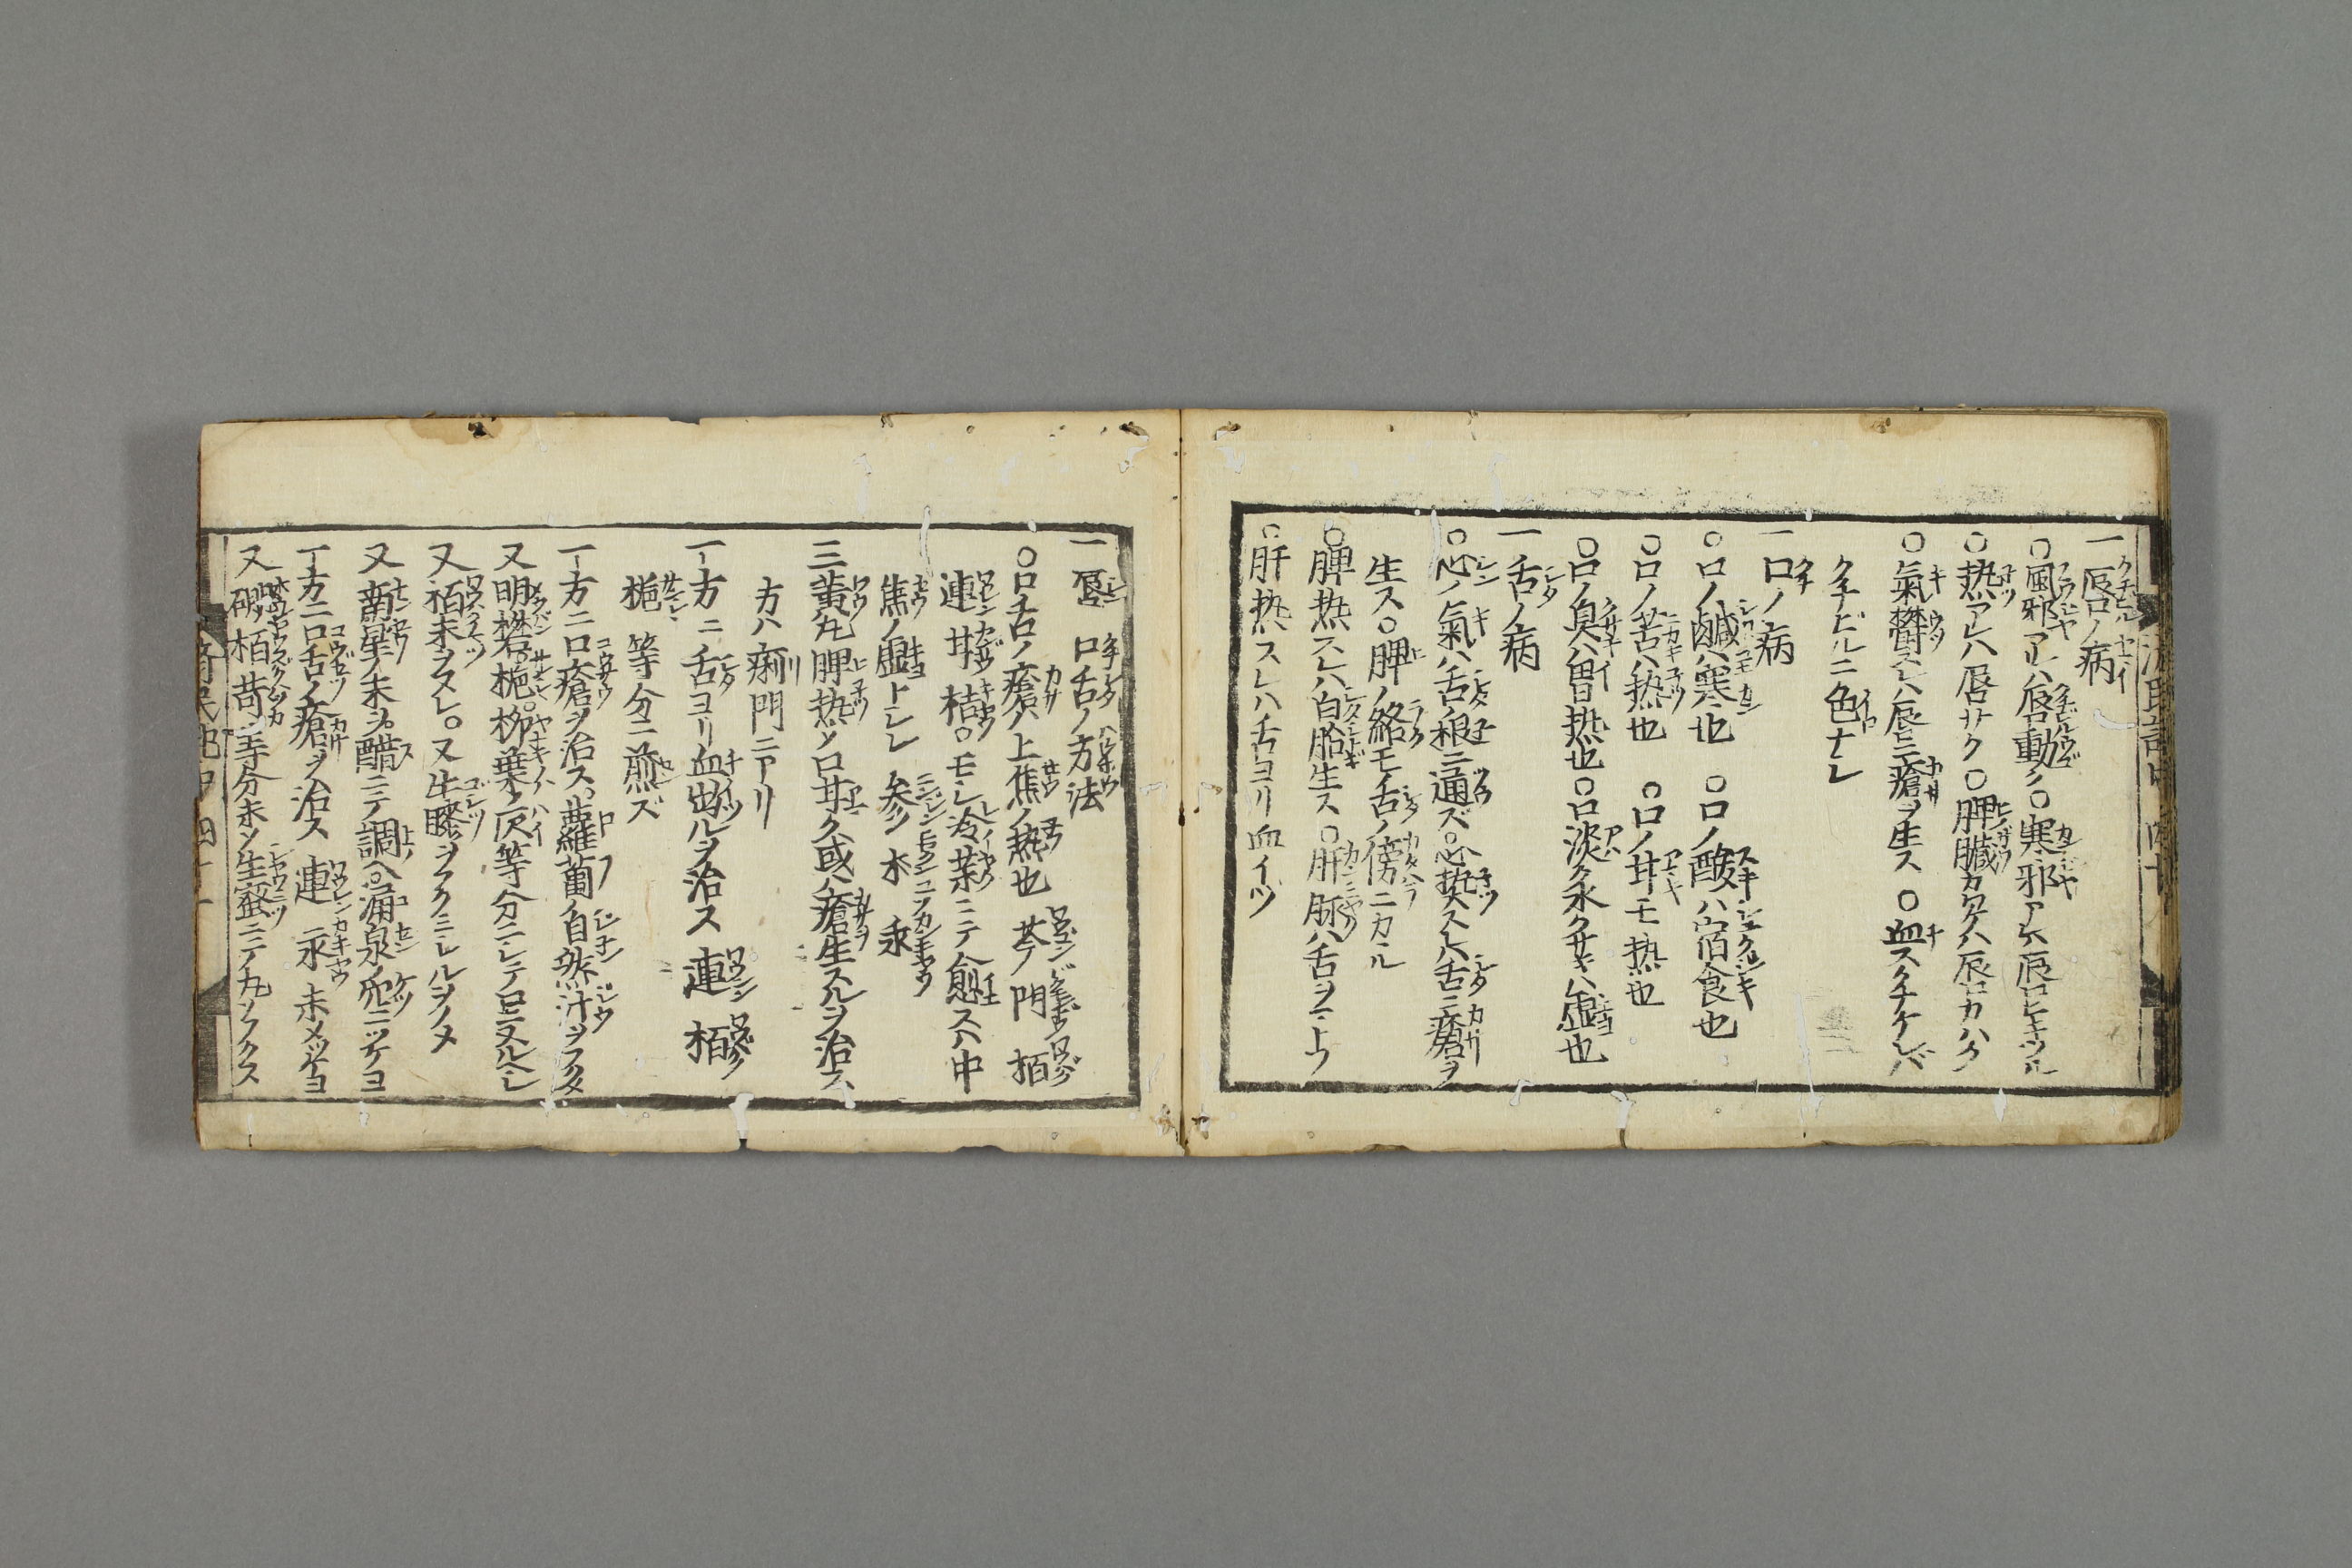 一唇ノ病
○風邪アレハ唇動ク○寒邪アレハ唇ヒキツル
○热アレハ唇サク○脾臓カワケハ唇カハク
○氣欝スレハ唇ニ瘡ヲ生ス ○血スクナケレバ
クチビルニ色ナシ
一口ノ病
○口ノ鹹ハ寒也 ○口ノ酸ハ宿食也
○口ノ苦ハ热也 ○口ノ甘モ热也
○口ノ臭ハ胃热也○口淡ク水クサキハ虚也
一舌ノ病
○心ノ氣ハ舌ノ根ニ通ズ○心热スレハ舌ニ瘡ヲ
生ス○脾ノ絡モ舌ノ傍ニカヽル
○脾热スレハ白胎生ス○肝脉ハ舌ヲマトウ
○肝热スレハ舌ヨリ血イツ
一唇口舌ノ方法
○口舌ノ瘡ハ上焦ノ熱也 芩 門 栢
連 甘 桔○モシ冷薬ニテ愈スハ中
焦ノ虚トシレ 參 朮
三黄丸脾热ソ口甘ク或ハ瘡生スルヲ治ス
方ハ痢門ニアリ
一方ニ舌ヨリ血出ルヲ治ス 連 栢
梔 等分ニ煎ズ
一方ニ口瘡ヲ治ス○蘿蔔ノ自然汁ヲフクメ
又明礬○梔○柳葉ノ灰等分ニシテ口ニヌルヘシ
又栢末ヲスレ○又生
又南星ノ末ヲ醋ニテ調ヘ湧泉ノ穴ニツケヨ
一方ニ口舌ノ瘡ヲ治ス 連 末メツケヨ
又 栢 等分末ソ生蜜ニテ丸ソフクス